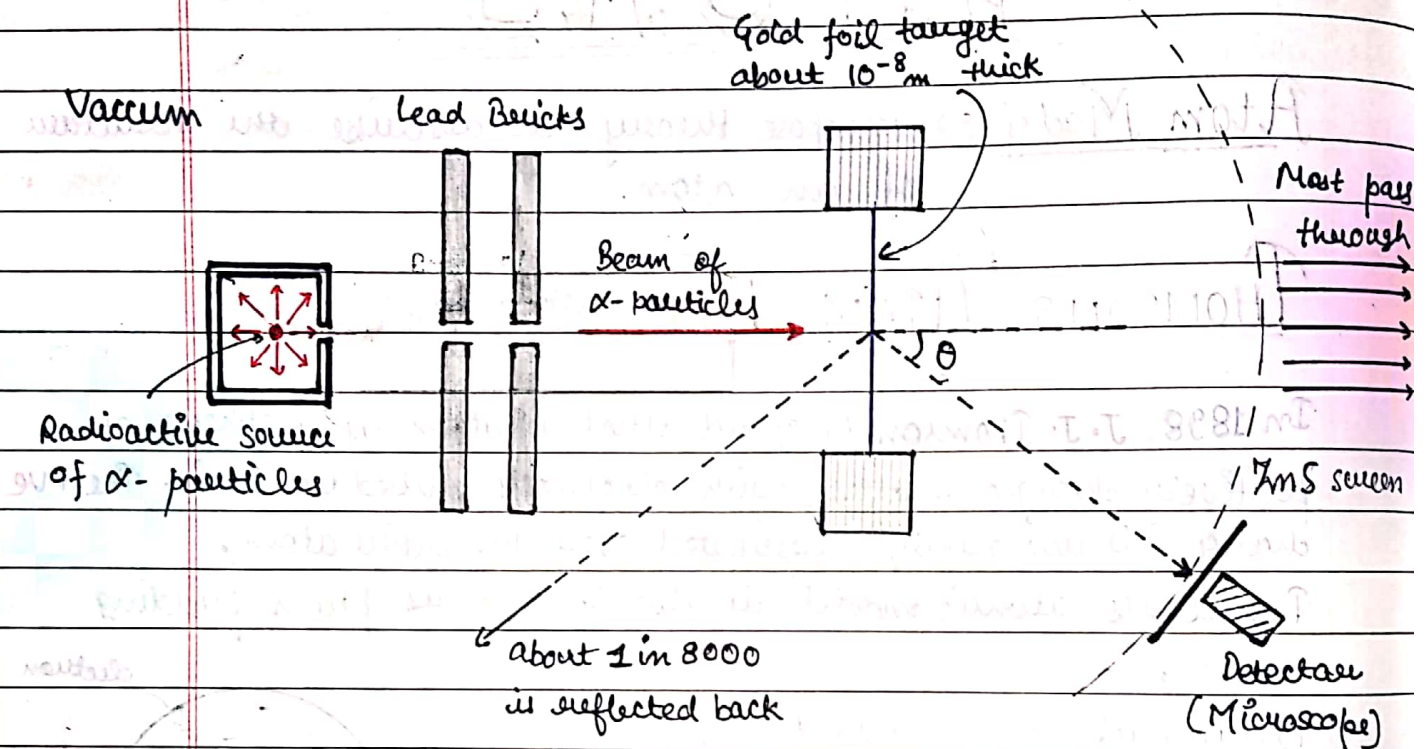 Gold foil target
about 10⁻⁸m thick
Vaccum
Lead Bricks
Most pass
through
Beam of
α-particles
θ
Radioactive source
of α- particles
ZnS screen
about 1 in 8000
is reflected back
Detector
(Microscope)
In 1898 J.J. Thomson